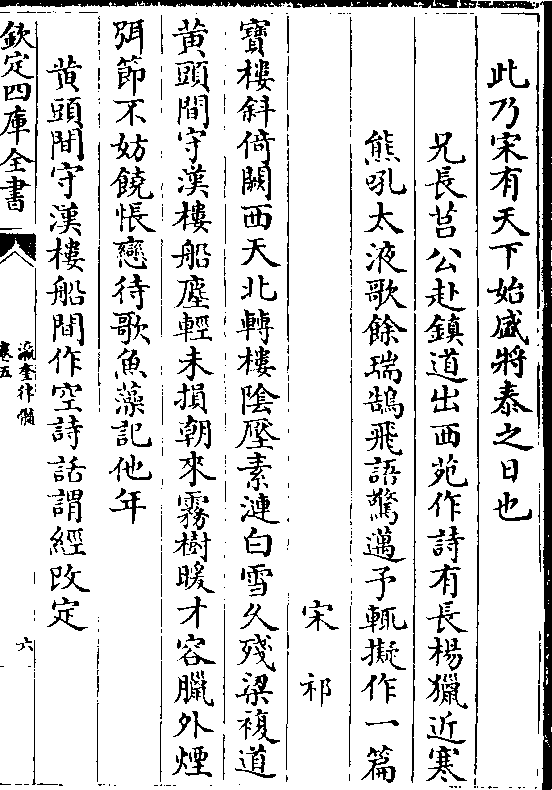 此乃宋有天下始盛將泰之日也
兄長莒公赴鎮道出西苑作詩有長楊獵近寒
熊吼太液歌餘瑞鵠飛語驚邁予輒擬作一篇
宋祁
寶樓斜倚闕西天北轉樓陰壓素漣白雪久殘梁複道
黄頭間守漢樓船塵輕未損朝來霧樹暖才容臘外煙
弭節不妨饒悵戀待歌魚藻記他年
黄頭間守漢樓船間作空詩話謂經改定
欽定四庫全書
瀛奎律髓
卷五
六